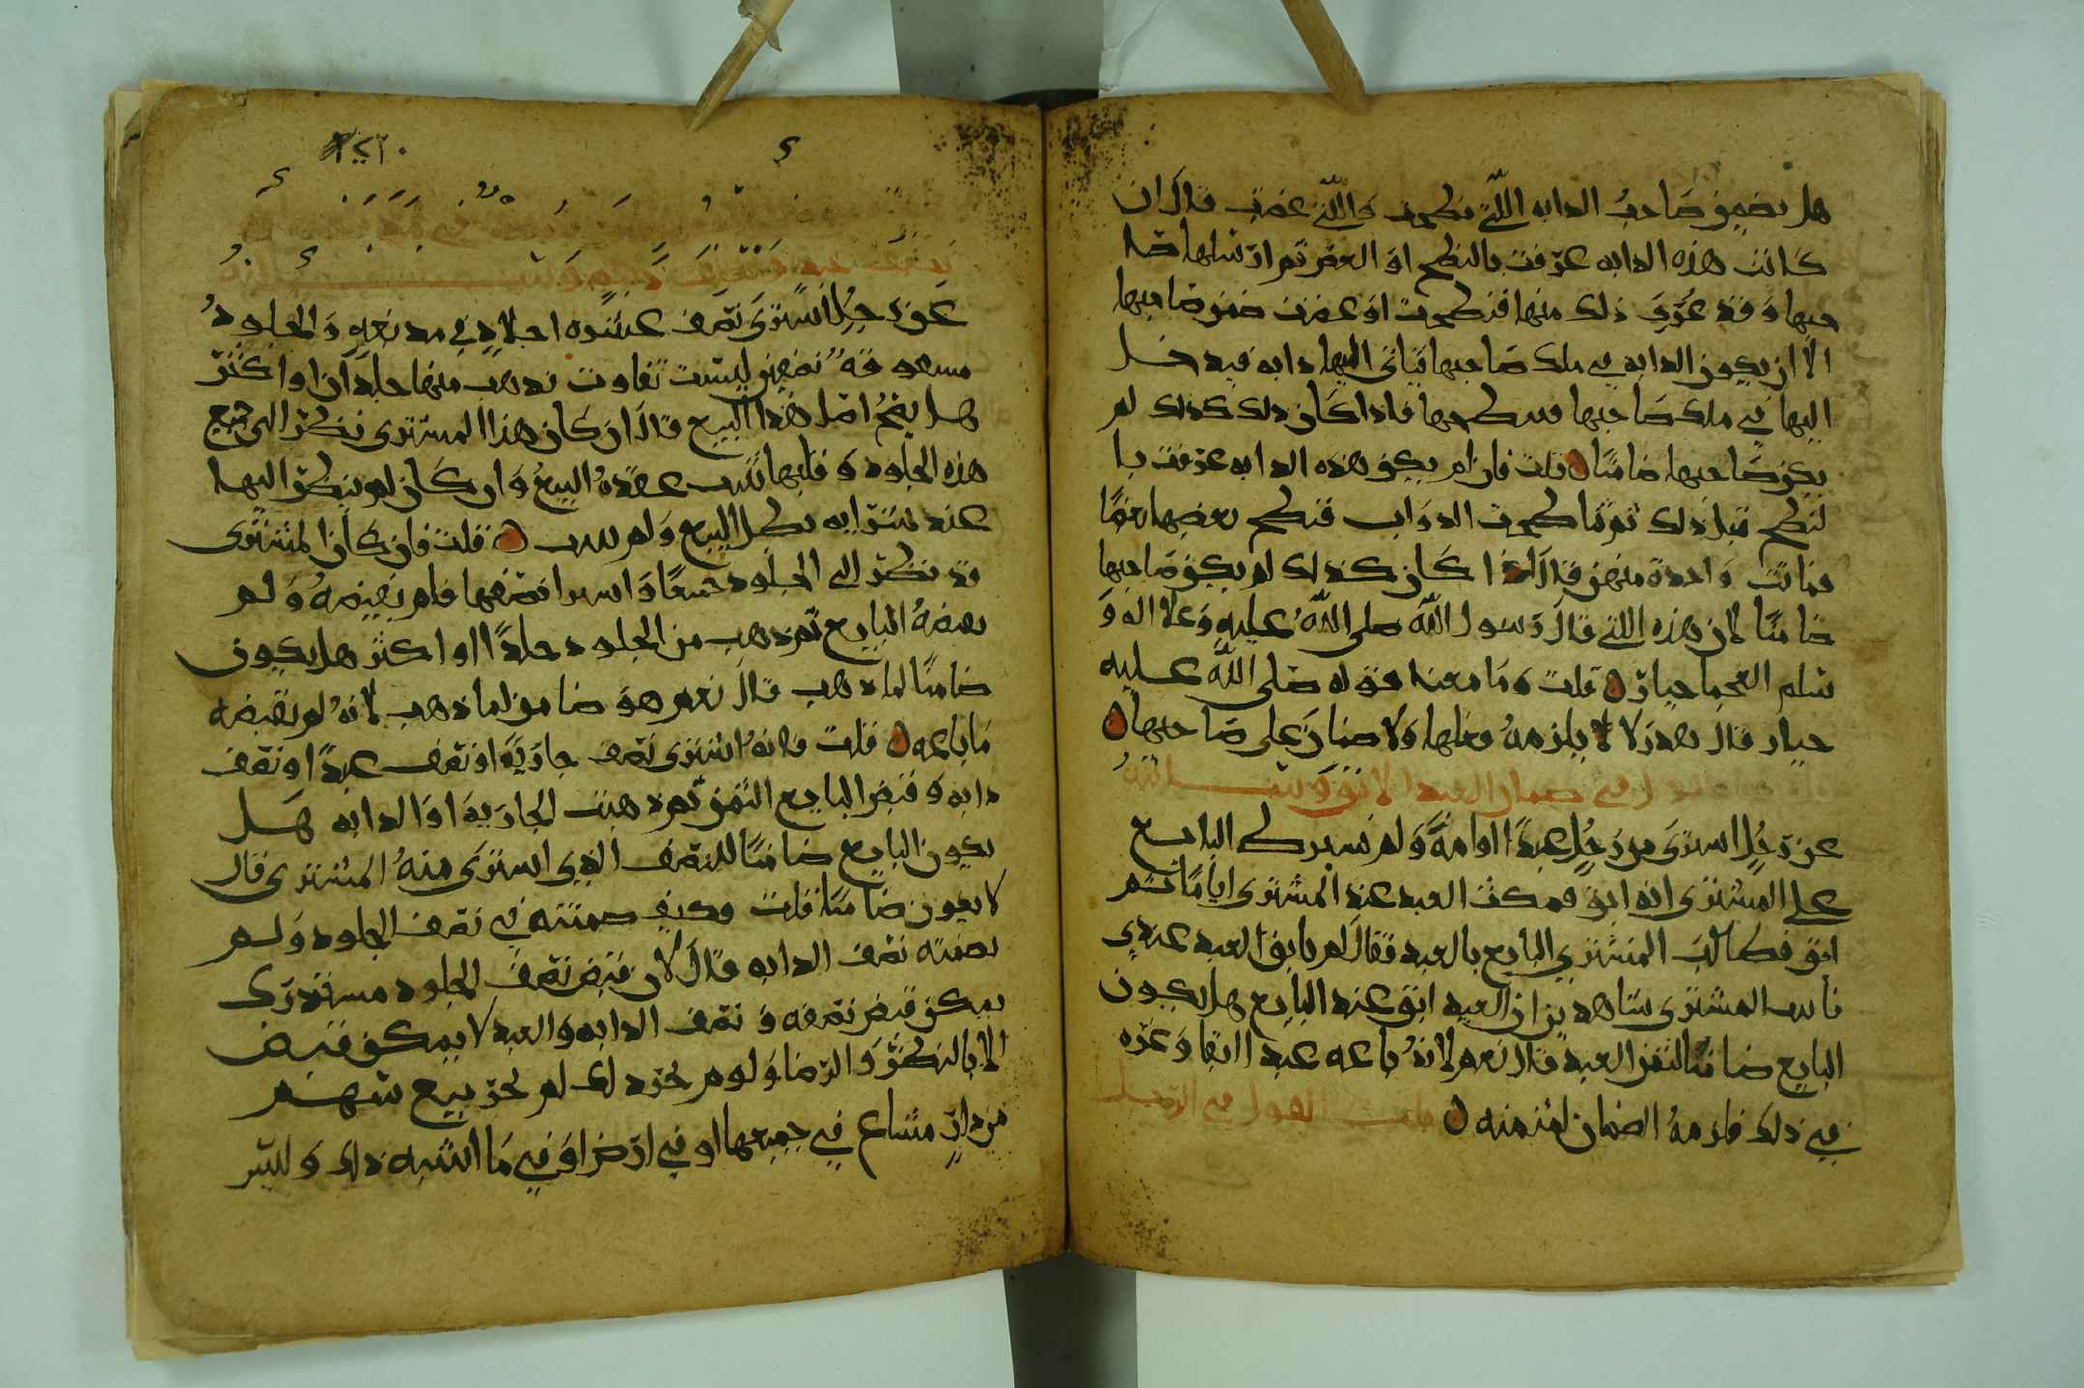 هل يضمن صاحب الدابه التي نطحت والتي عضت قال ان
كانت هذه الدابه عرفت بالنطح او العقر ثم ارسلها صا
حبها وقد عرف ذلك منها فنطحت او عضت ضمن صاحبها
الا ان يكون الدابه في ملك صاحبها فياتي اليها دابه فيدخل
اليها في ملك صاحبها فينطحها فاذا كان ذلك كذلك لم
يكن صاحبها ضامنا قلت فان لم يكن هذه الدابه عرفت با
لنطح قبل ذلك ثم تناطحت الدواب فنطح بعضها بعضا
فماتت واحدة منهن قال اذا كان كذلك لم يكن صاحبها
ضامنا لان هذه التي قال رسول الله صلى الله عليه وعلا اله و
سلم العجما جبار قلت وما معنا قوله صلى الله عليه
جبار قال هدر لا يلزمه فعلها ولا ضمان على صاحبها
القول في ضمان العبد الابق وسالته
عن رجل اشترى من رجل عبدا او امة ولم يشرط البايع
على المشتري انه ابق فمكث العبد عند المشتري اياما ثم
ابق فطالب المشتري البايع بالعبد فقال لم يابق العبد عندي
فاتا المشتري شاهدين ان العبد ابق عند البايع هل يكون
البايع ضامنا لثمن العبد قال نعم لانه باعه عبدا ابقا وغره
في ذلك فلزمه الضمان لثمنه باب القول في الرجل
يشتري نصف وسالته
عن رجل اشترى نصف عشره اجلاد في مدبغه والجلود
تضمن ليست تفاوت ذهب منها جلدان او اكثر
هل يصح امثل هذا البيع قال ان كان هذا المشتري نظر الى جميع
هذه الجلود وقلبها ثبتت عقدة البيع وان كان لم ينظر اليها
عند شرايه بطل البيع ولم يثبت قلت فان كان المشتري
قد نظر الى الجلود جميعا واشترا نصفها فلم يقبضه ولم
يقبضه البايع ثم ذهب من الجلود جلدا او اكثر هل يكون
ضامنا لما ذهب قال نعم هو ضامن لما ذهب لانه لم يقبضه
ما باعه قلت فانه اشترى نصف جارية او نصف عبدا او نصف
دابه وقبض البايع الثمن ثم ذهبت الجارية او الدابه هل
يكون البايع ضامنا للنصف الذي اشترى منه المشتري قال
لا يكون ضامنا قلت وكيف ضمنته في نصف الجلود ولم
تضمنه نصف الدابه قال لان قبض نصف الجلود مستدرك
يمكن قبض نصفه ونصف الدابه والعبد لا يمكن قبضه
الا بالنظر والرضا ولو لم يجز ذلك لم يجز بيع سهم
من دار مشاع في جميعها او في ارض او في ما اشبه ذلك وليس